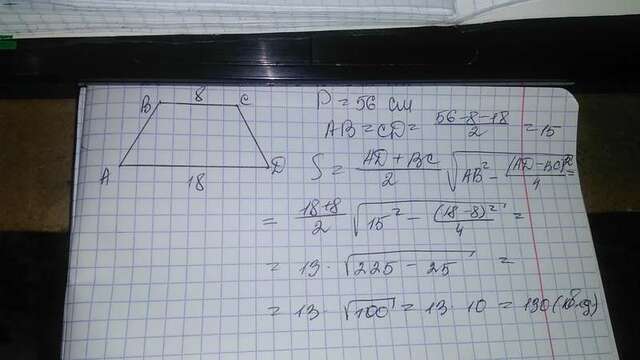 B 8 C
A 18 D
P = 56 см
AB = CD = (56-8-18)/2 = 15
S = (AD + BC)/2 √(AB² - (AD-BC)²/4) =
= (18+8)/2 √(15² - (18-8)²/4) =
= 13 · √(225 - 25) =
= 13 · √100 = 13 · 10 = 130